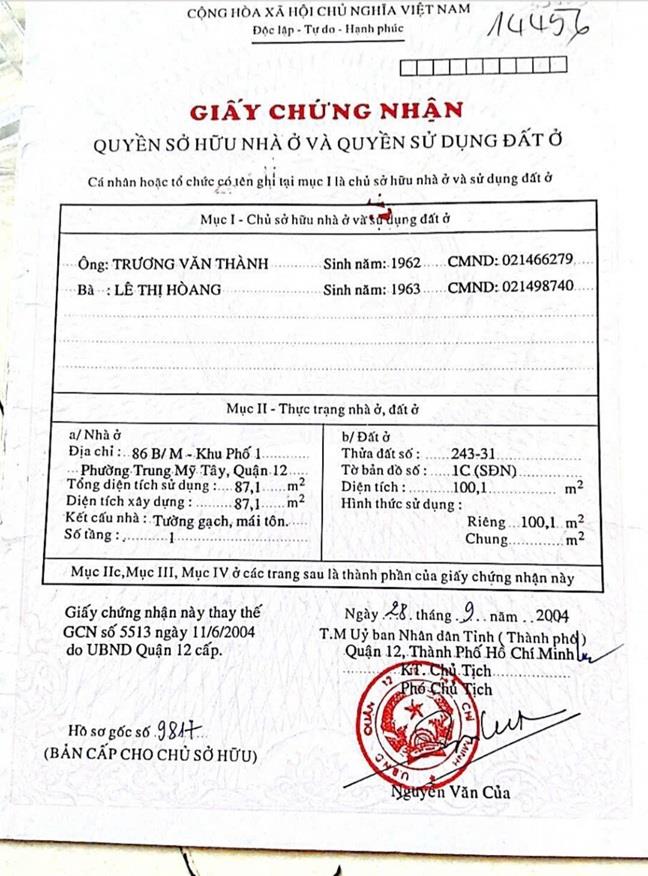 CỘNG HÒA XÃ HỘI CHỦ NGHĨA VIỆT NAM
Độc lập - Tự do - Hạnh phúc
14456
GIẤY CHỨNG NHẬN
QUYỀN SỞ HỮU NHÀ Ở VÀ QUYỀN SỬ DỤNG ĐẤT Ở
Cá nhân hoặc tổ chức có tên ghi tại mục I là chủ sở hữu nhà ở và sử dụng đất ở
Mục I - Chủ sở hữu nhà ở và sử dụng đất ở
Ông: TRƯƠNG VĂN THÀNH Sinh năm: 1962 CMND: 021466279
Bà : LÊ THỊ HÒANG Sinh năm: 1963 CMND: 021498740
Mục II - Thực trạng nhà ở, đất ở
a/ Nhà ở
Địa chỉ : 86 B/ M - Khu Phố 1
Phường Trung Mỹ Tây, Quận 12
Tổng diện tích sử dụng : 87,1 m2
Diện tích xây dựng : 87,1 m2
Kết cấu nhà : Tường gạch, mái tôn.
Số tầng : 1
b/ Đất ở
Thửa đất số : 243-31
Tờ bản đồ số : 1C (SĐN)
Diện tích : 100,1 m2
Hình thức sử dụng :
Riêng 100,1 m2
Chung m2
Mục IIc,Mục III, Mục IV ở các trang sau là thành phần của giấy chứng nhận này
Giấy chứng nhận này thay thế
GCN số 5513 ngày 11/6/2004
do UBND Quận 12 cấp.
Hồ sơ gốc số 9817
(BẢN CẤP CHO CHỦ SỞ HỮU)
Ngày 28 tháng 9 năm 2004
T.M Uỷ ban Nhân dân Tỉnh ( Thành phố )
Quận 12, Thành Phố Hồ Chí Minh
KT. Chủ Tịch
Phó Chủ Tịch
UBND QUẬN 12 CHÍ MINH
Nguyễn Văn Của